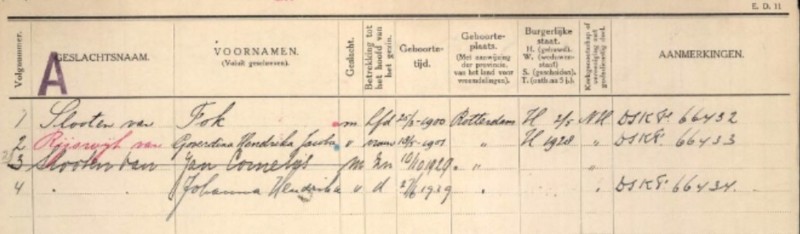 E. D. 11
Volgnummer. GESLACHTSNAAM. VOORNAMEN. (Voluit geschreven). Geslacht. Betrekking tot het hoofd van het gezin. Geboorte-tijd. Geboorte-plaats. (Met aanwijzing der provincie, van het land voor vreemdelingen). Burgerlijke staat. H. (gehuwd). W. (weduwen-staat) S. (gescheiden). T. Kerkgenootschap of AANMERKINGEN.
A
1 Slooten van Fok m hfd 1900 Rotterdam H NH 66432
2 Rijswijk van Goverdina Hendrika Jacoba v vrouw 1901 " H 1928 " 66433
3 Slooten van Jan Cornelis m Zn 1929 " "
4 " Johanna Hendrika v d 1929 " " 66434.